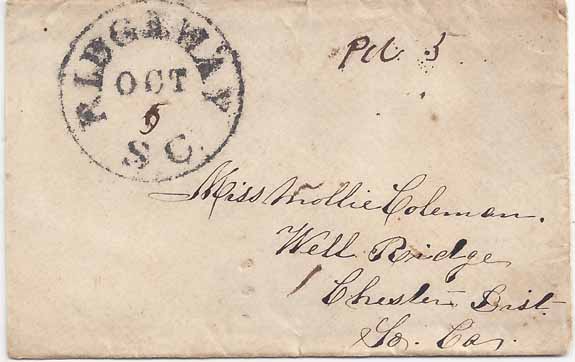 RIDGEWAY
OCT
5
S C.
Pd. 5
Miss Mollie Coleman.
Well Ridge
Chester Dist.
So. Ca.